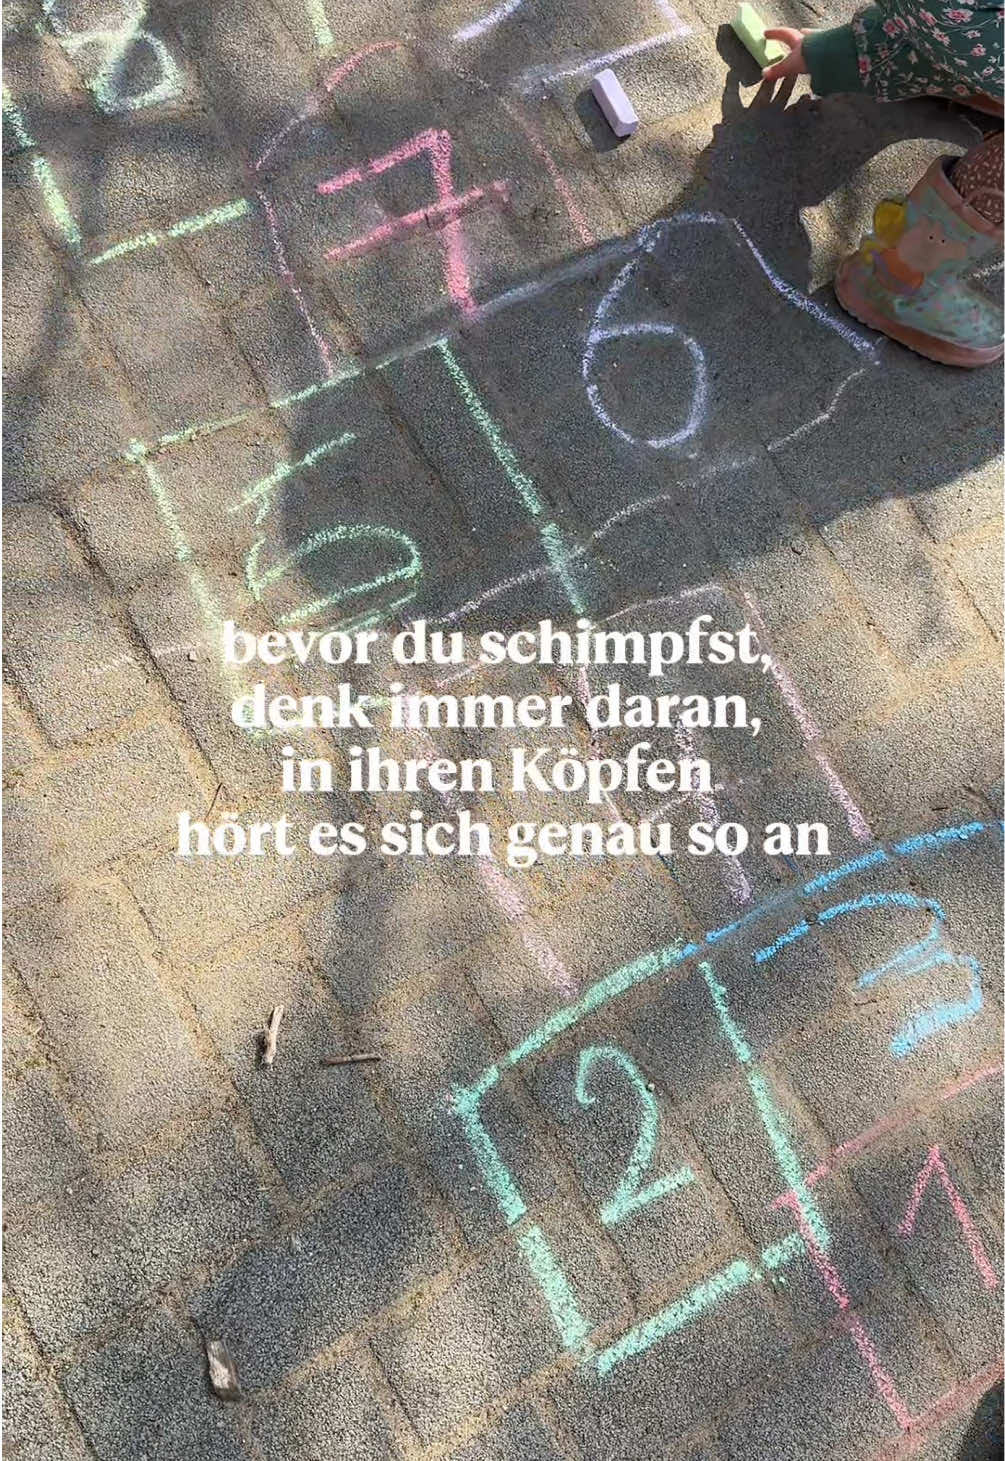 8
7
6
5
4
bevor du schimpfst,
denk immer daran,
in ihren Köpfen
hört es sich genau so an
3
2
1